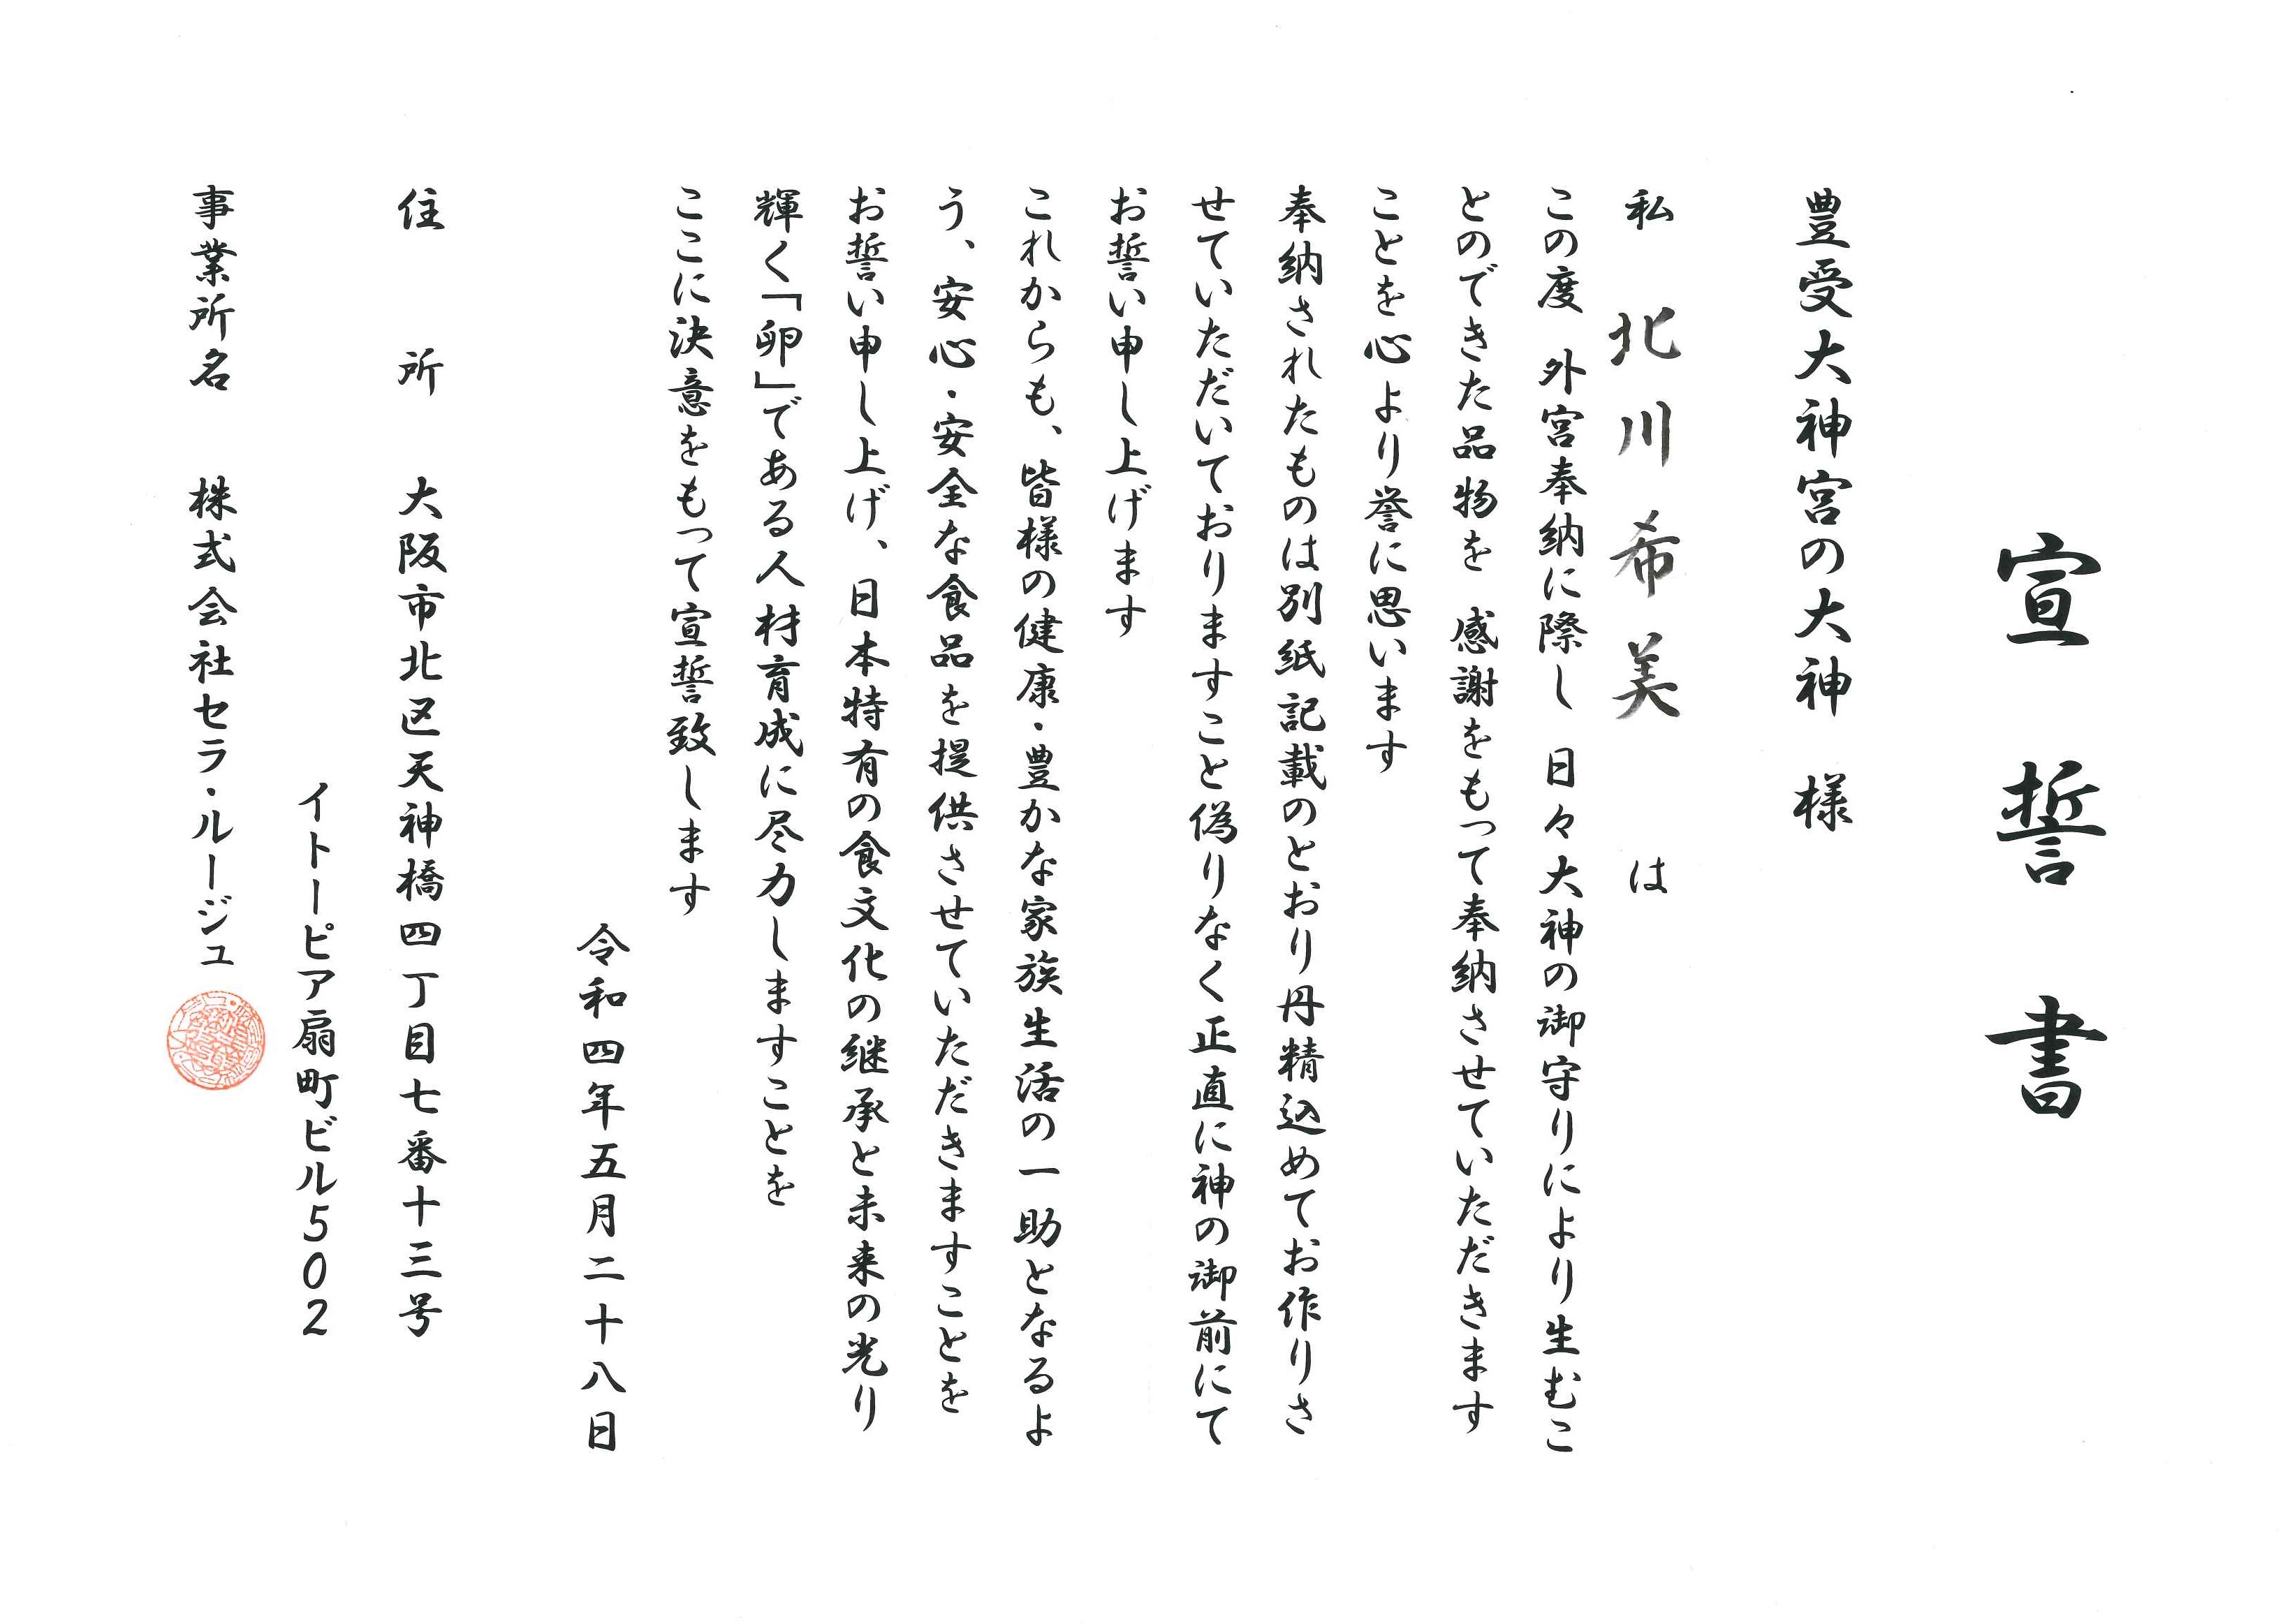 宣誓書
豊受大神宮の大神 様
私 北川希美 は
この度 外宮奉納に際し 日々大神の御守りにより生むこ
とのできた品物を 感謝をもって奉納させていただきます
ことを心より誉に思います
奉納されたものは別紙記載のとおり丹精込めてお作りさ
せていただいておりますこと偽りなく正直に神の御前にて
お誓い申し上げます
これからも、皆様の健康・豊かな家族生活の一助となるよ
う、安心・安全な食品を提供させていただきますことを
お誓い申し上げ、日本特有の食文化の継承と未来の光り
輝く「卵」である人材育成に尽力しますことを
ここに決意をもって宣誓致します
令和四年五月二十八日
住所 大阪市北区天神橋四丁目七番十三号
イトーピア扇町ビル502
事業所名 株式会社セラ・ルージュ